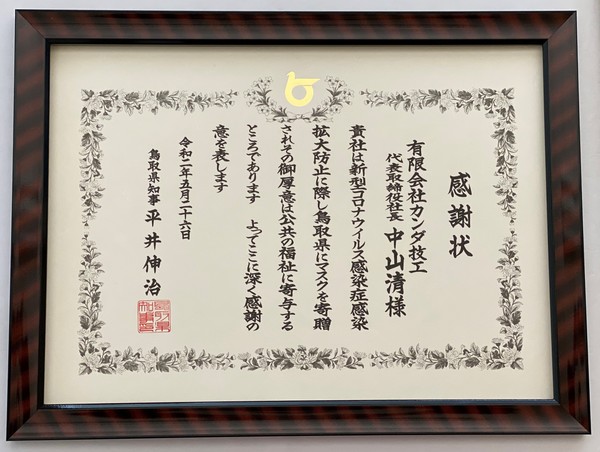 感謝状
有限会社カンダ技工
代表取締役社長 中山清様
貴社は新型コロナウイルス感染症感染
拡大防止に際し鳥取県にマスクを寄贈
されその御厚意は公共の福祉に寄与する
ところであります よってここに深く感謝の
意を表します
令和二年五月二十六日
鳥取県知事 平井伸治